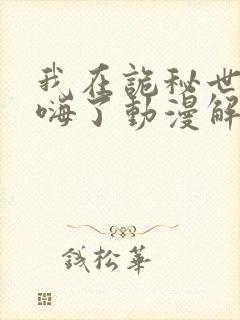 我在詭秘世
嗨了動漫解
錢松華